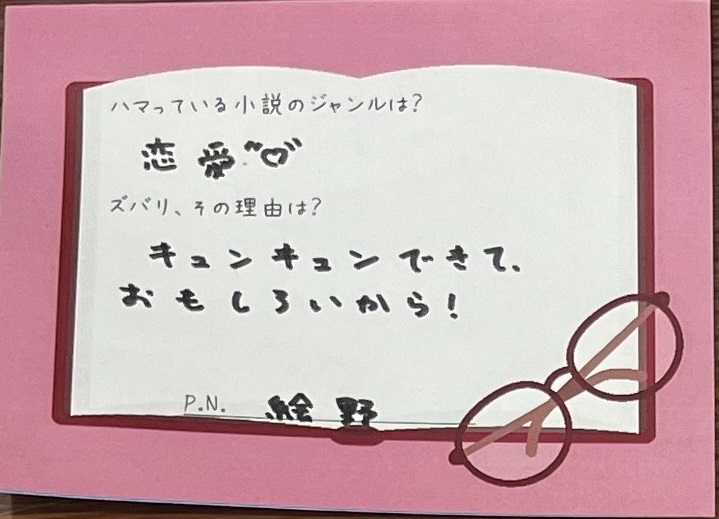 ハマっている小説のジャンルは?
恋愛"♡"
ズバリ、その理由は?
キュンキュンできて、
おもしろいから!
P.N. 絵野